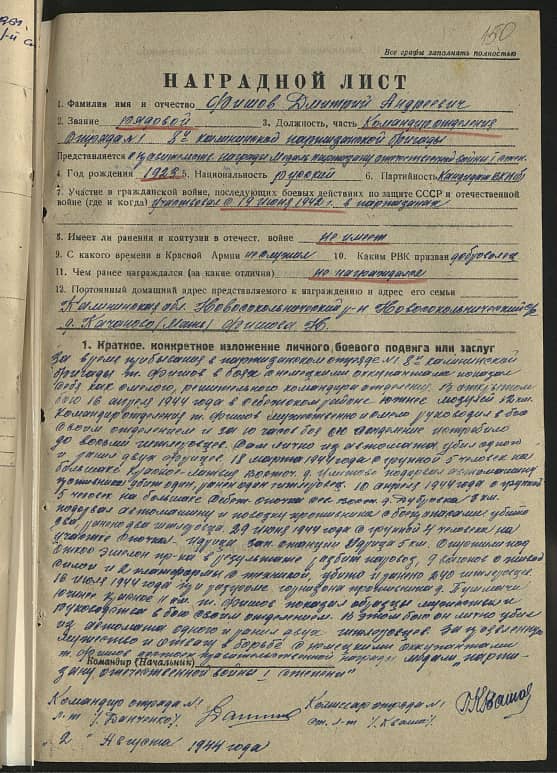 150
Все графы заполнять полностью
НАГРАДНОЙ ЛИСТ
1. Фамилия имя и отчество Фишов Дмитрий Андреевич
2. Звание рядовой 3. Должность, часть Командир отделения
отряда №1 8й калининской партизанской бригады
Представляется к правительств. награде Медаль партизану отечественной войны I степ.
4. Год рождения 1923 5. Национальность русский 6. Партийность Кандидат ВКП(б)
7. Участие в гражданской войне, последующих боевых действиях по защите СССР и отечественной
войне (где и когда) участвовал с 19 июня 1942 г. в партизанах
8. Имеет ли ранения и контузии в отечест. войне не имеет
9. С какого времени в Красной Армии не служил 10. Каким РВК призван доброволец
11. Чем ранее награждался (за какие отличия) не награждался
12. Постоянный домашний адрес представляемого к награждению и адрес его семьи
Калининская обл. Новосокольнический р-н Новосокольнический с/с
д. Качаново (Мать) Фишова
1. Краткое, конкретное изложение личного боевого подвига или заслуг
За время пребывания в партизанском отряде №1 8й калининской
бригады т. Фишов в боях с немецкими оккупантами показал
себя как смелого, решительного командира отделения. В открытом
бою 16 апреля 1944 года в Себежском районе южнее 12 км.
Командир отделения т. Фишов мужественно и смело руководил в бою
своим отделением и за 10 часов боя его отделение истребило
до восьми гитлеровцев. Сам лично из автомата убил одного
и ранил двух фрицев. 18 марта 1944 года с группой 5 человек на
большаке Красное восточ. д. подорвал автомашину
противника убит один, ранен один гитлеровец. 10 апреля 1944 года с группой
5 человек на большаке Себеж Опочка д. Дубровка 8 км.
подорвал автомашину и повозку противника с боеприпасами убито
два, ранено два гитлеровца. 29 июня 1944 года с группой 4 человек на
участке Опочка Идрица, зап. станции Идрица 5 км. спустили под
откос эшелон пр-ка в результате разбит паровоз, 9 вагонов с живой
силой и 2 платформы с техникой, убито и ранено 240 гитлеровцев.
16 июля 1944 года при разгроме гарнизона противника д.
южнее Красное 11 км т. Фишов показал образцы мужества и
руководства в бою своим отделением. В этом бою он лично убил
из автомата одного и ранил двух гитлеровцев. За проявленное
мужество и отвагу в борьбе с немецкими оккупантами
т. Фишов достоин правительственной награды медали "парти-
Командир (Начальник)
зану отечественной войны I степени"
Командир отряда №1
л-т /Данченко/
Комиссар отряда №1
ст. л-т /Кваша/
"2" Августа 1944 года